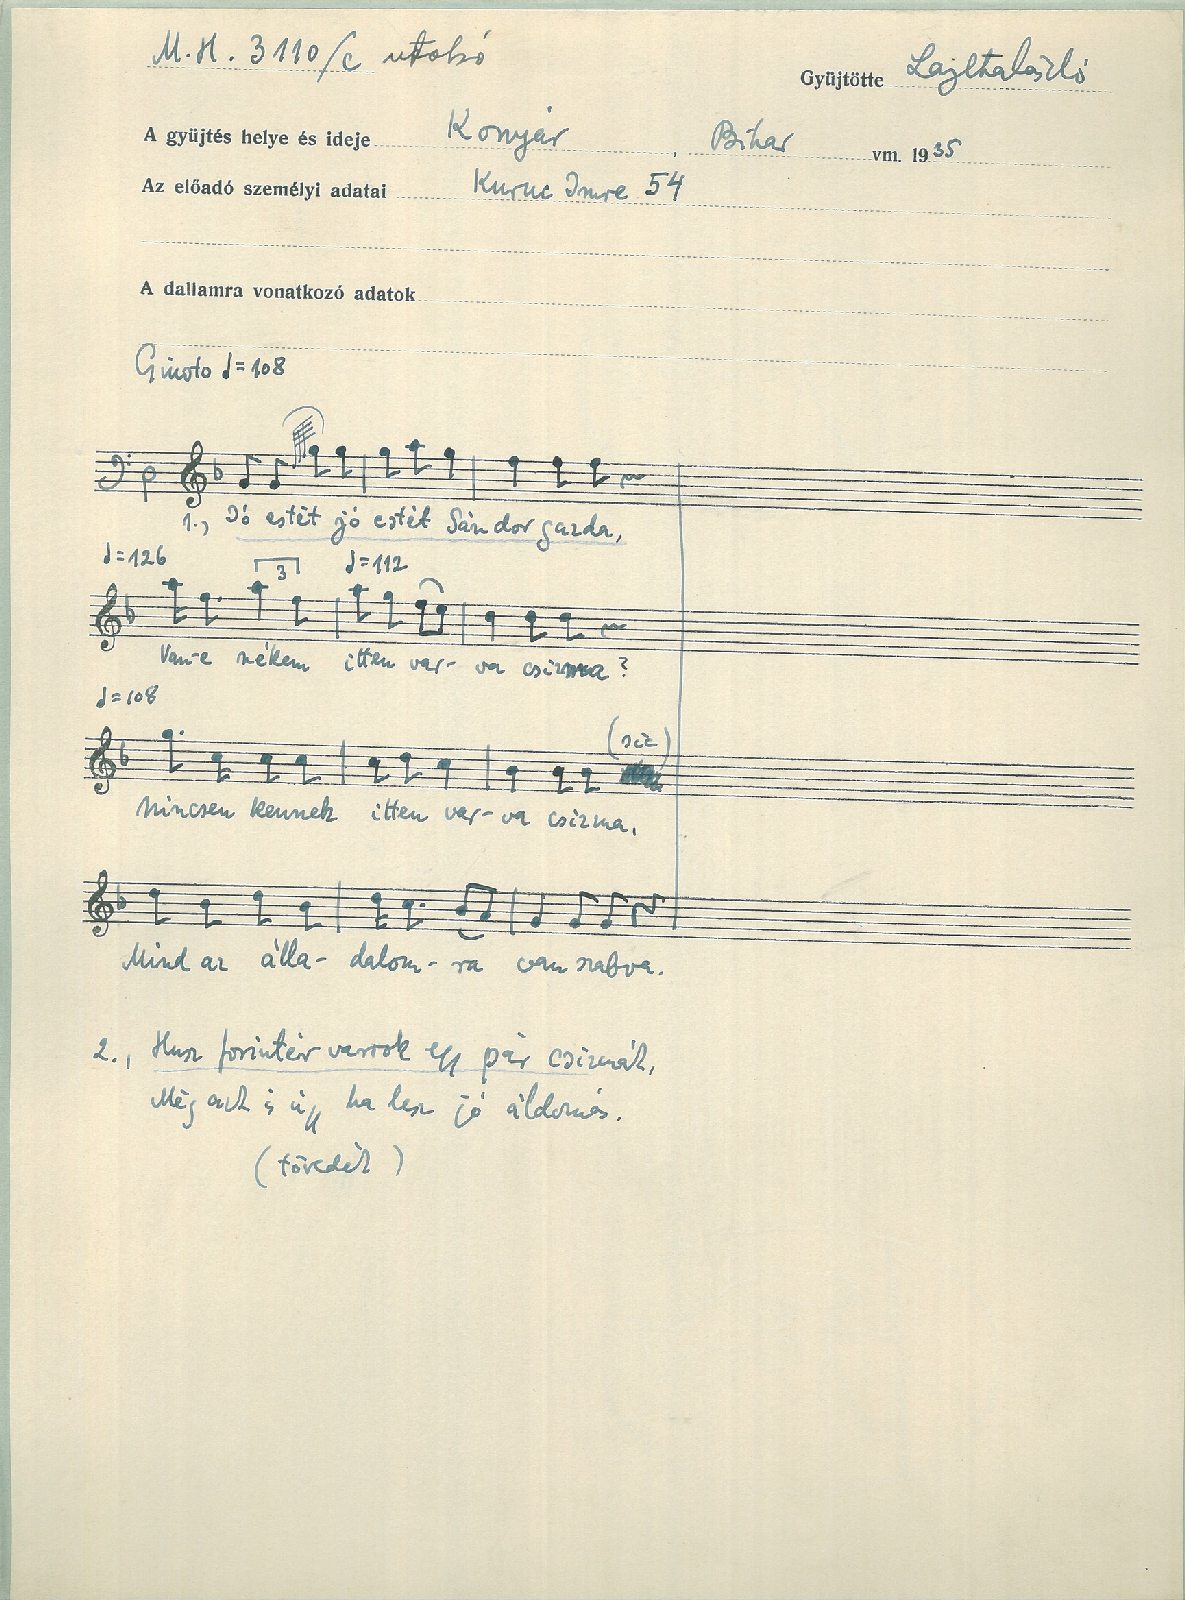 M.H. 3110/c utolsó
Gyüjtötte Lajtha László
A gyüjtés helye és ideje Konyár, Bihar vm. 1935
Az előadó személyi adatai Kuruc Imre 54
A dallamra vonatkozó adatok
Giusto ♩=108
1., Jó estét jó estét Sándor gazda,
♩=126 3 ♩=112
Van-e nékem itten var- va csizma?
♩=108
(sic)
Nincsen kennek itten var- va csizma.
Mind az álla- dalom- ra van szabva.
2., Husz forintér varrok egy pár csizmát,
Még azt is úgy ha lesz jó áldomás.
(töredék)